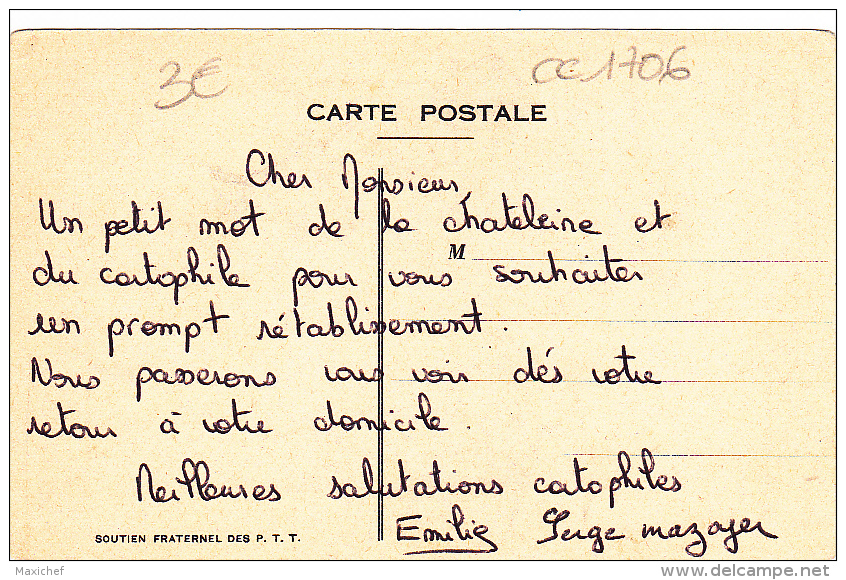 3€
CC1706
CARTE POSTALE
Cher Monsieur,
Un petit mot de la chateleine et
M
du cartophile pour vous souhaiter
un prompt rétablissement.
Nous passerons vous voir dés votre
retour à votre domicile.
Meilleures salutations catophiles
Emilie Serge mazoyer
SOUTIEN FRATERNEL DES P. T. T.
Maxichef
delcampe.net